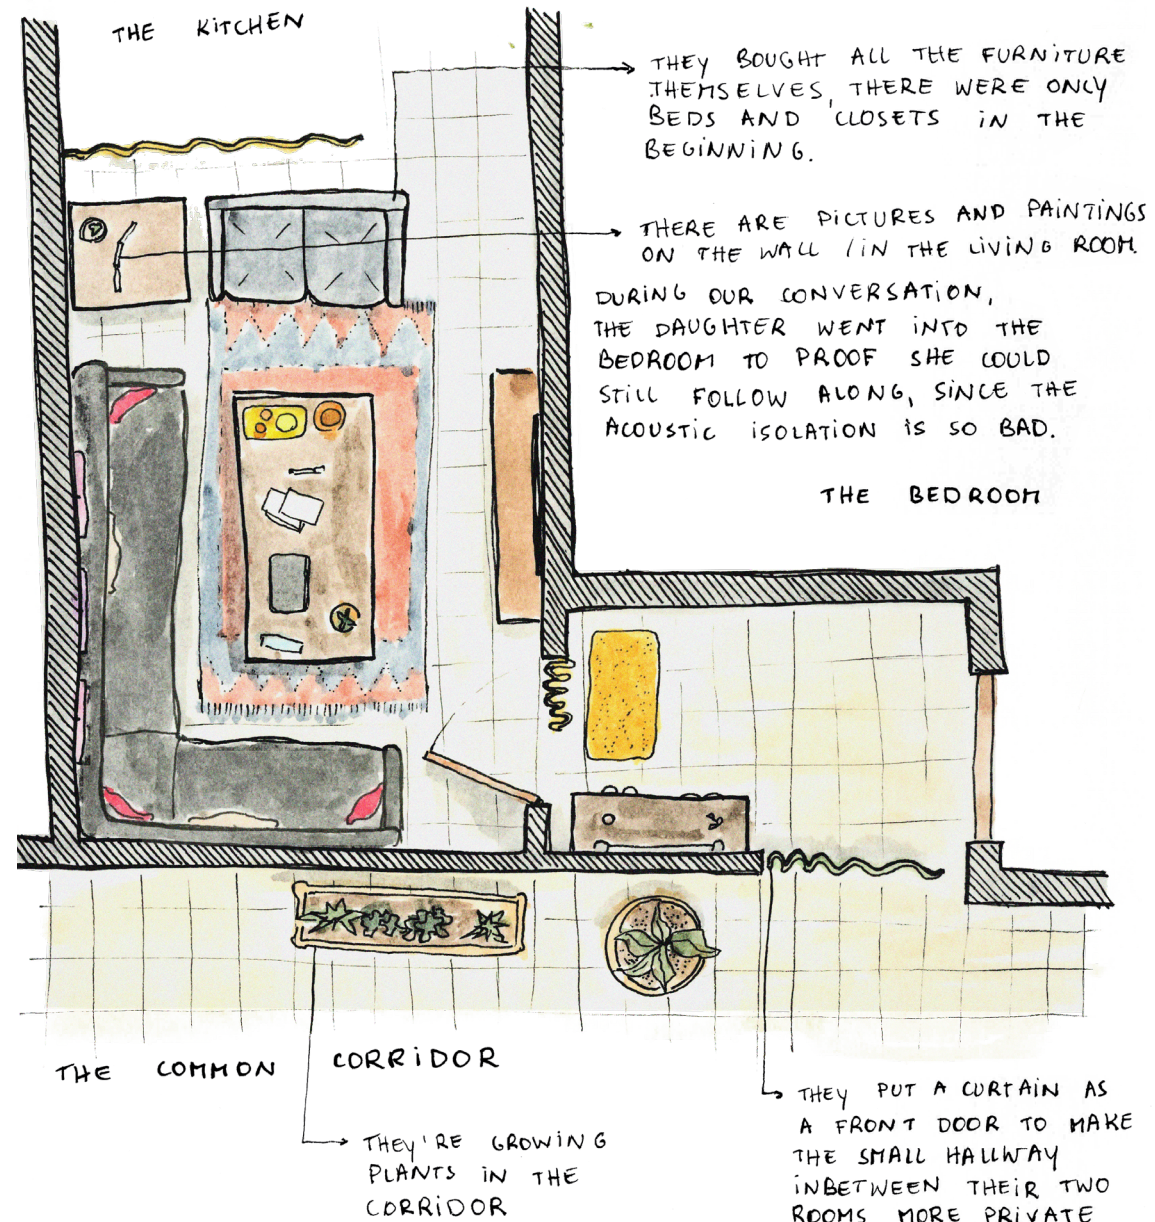 THE KITCHEN
THEY BOUGHT ALL THE FURNITURE
THEMSELVES, THERE WERE ONLY
BEDS AND CLOSETS IN THE
BEGINNING.
THERE ARE PICTURES AND PAINTINGS
ON THE WALL / IN THE LIVING ROOM.
DURING OUR CONVERSATION,
THE DAUGHTER WENT INTO THE
BEDROOM TO PROOF SHE COULD
STILL FOLLOW ALONG, SINCE THE
ACOUSTIC ISOLATION IS SO BAD.
THE BEDROOM
THE COMMON CORRIDOR
THEY'RE GROWING
PLANTS IN THE
CORRIDOR
THEY PUT A CURTAIN AS
A FRONT DOOR TO MAKE
THE SMALL HALLWAY
INBETWEEN THEIR TWO
ROOMS MORE PRIVATE